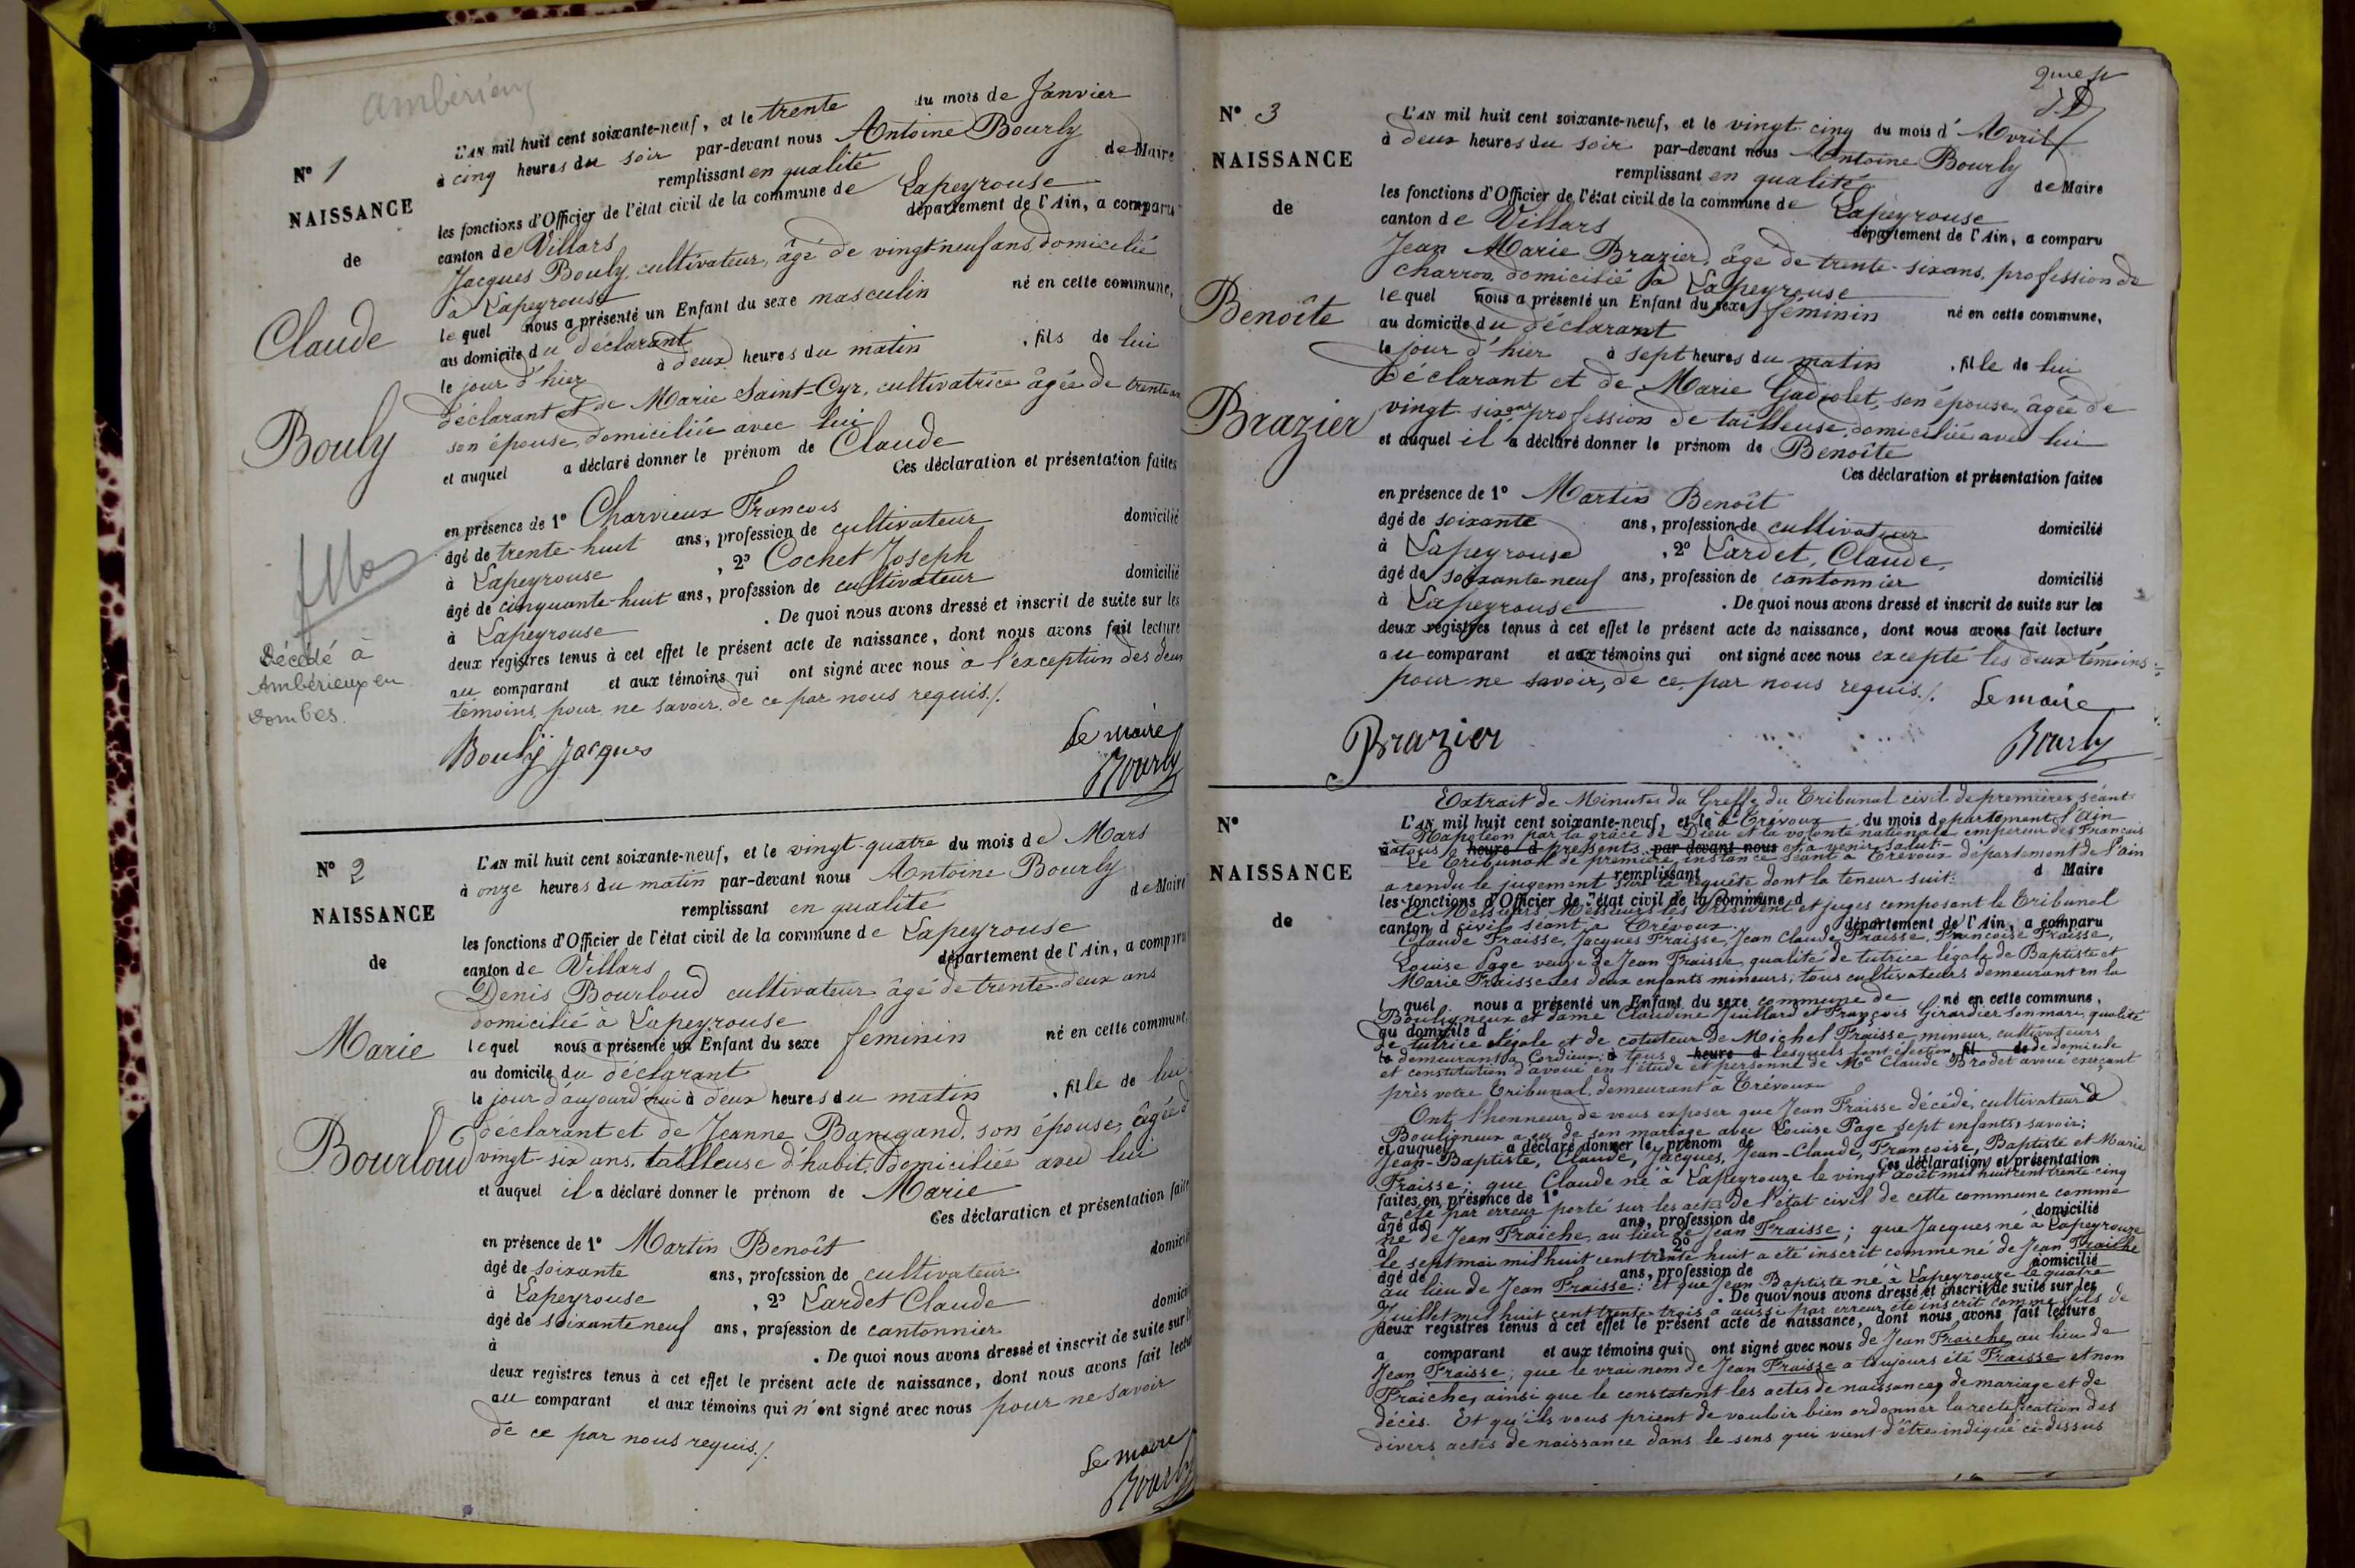 Ambérieux
N° 1
NAISSANCE
de
Claude
Bouly
Décédé à
Ambérieux en
Dombes.
L'AN mil huit cent soixante-neuf, et le trente du mois de Janvier
à cinq heures du soir par-devant nous Antoine Bourly
remplissant en qualité de Maire
les fonctions d'Officier de l'état civil de la commune de Lapeyrouse
canton de Villars département de l'Ain, a comparu
Jacques Bouly, cultivateur, âgé de vingt-neuf ans, domicilié
à Lapeyrouse
lequel nous a présenté un Enfant du sexe masculin né en cette commune,
au domicile du déclarant
le jour d'hier à deux heures du matin , fils de lui
déclarant et de Marie Saint-Cyr, cultivatrice âgée de trente ans
son épouse, domiciliée avec lui
et auquel a déclaré donner le prénom de Claude
Ces déclaration et présentation faites
en présence de 1° Charvieux François
âgé de trente-huit ans, profession de cultivateur domicilié
à Lapeyrouse , 2° Cochet Joseph
âgé de cinquante-huit ans, profession de cultivateur domicilié
à Lapeyrouse . De quoi nous avons dressé et inscrit de suite sur les
deux registres tenus à cet effet le présent acte de naissance, dont nous avons fait lecture
au comparant et aux témoins qui ont signé avec nous à l'exception des deux
témoins, pour ne savoir, de ce par nous requis./.
Bouly Jacques
Le maire
Bourly
N° 2
NAISSANCE
de
Marie
Bourloud
L'AN mil huit cent soixante-neuf, et le vingt-quatre du mois de Mars
à onze heures du matin par-devant nous Antoine Bourly
remplissant en qualité de Maire
les fonctions d'Officier de l'état civil de la commune de Lapeyrouse
canton de Villars département de l'Ain, a comparu
Denis Bourloud cultivateur âgé de trente-deux ans
domicilié à Lapeyrouse
lequel nous a présenté un Enfant du sexe féminin né en cette commune,
au domicile du déclarant
le jour d'aujourd'hui à deux heures du matin , fille de lui
déclarant et de Jeanne son épouse, âgée d
vingt-six ans, tailleuse d'habit, domiciliée avec lui
et auquel il a déclaré donner le prénom de Marie
Ces déclaration et présentation faite
en présence de 1° Martin Benoît
âgé de soixante ans, profession de cultivateur domicili
à Lapeyrouse , 2° Lardet Claude
âgé de soixante neuf ans, profession de cantonnier domici
à . De quoi nous avons dressé et inscrit de suite sur l
deux registres tenus à cet effet le présent acte de naissance, dont nous avons fait lectu
au comparant et aux témoins qui n'ont signé avec nous pour ne savoir
de ce par nous requis./.
Le maire
Bourly
N° 3
NAISSANCE
de
Benoîte
Brazier
L'AN mil huit cent soixante-neuf, et le vingt-cinq du mois d'Avril
à deux heures du soir par-devant nous Antoine Bourly
remplissant en qualité de Maire
les fonctions d'Officier de l'état civil de la commune de Lapeyrouse
canton de Villars département de l'Ain, a comparu
Jean Marie Brazier, âgé de trente-six ans, profession de
charron domicilié à Lapeyrouse
lequel nous a présenté un Enfant du sexe féminin né en cette commune,
au domicile du déclarant
le jour d'hier à sept heures du matin , fille de lui
déclarant et de Marie Gadiolet, son épouse, âgée de
vingt-six ans profession de tailleuse, domiciliée avec lui
et auquel il a déclaré donner le prénom de Benoîte
Ces déclaration et présentation faites
en présence de 1° Martin Benoît
âgé de soixante ans, profession de cultivateur domicilié
à Lapeyrouse , 2° Lardet, Claude,
âgé de soixante neuf ans, profession de cantonnier domicilié
à Lapeyrouse . De quoi nous avons dressé et inscrit de suite sur les
deux registres tenus à cet effet le présent acte de naissance, dont nous avons fait lecture
au comparant et aux témoins qui ont signé avec nous excepté les deux témoins
pour ne savoir, de ce par nous requis./.
Le maire
Brazier
Bourly
N°
NAISSANCE
de
Extrait de Minutes du Greffe du Tribunal civil de première, séant
L'AN mil huit cent soixante-neuf, et le à Trévoux du mois d département l'ain
Napoléon par la grâce de Dieu et la volonté nationale empereur des Français
à tous heure d présents par-devant nous et à venir, salut.
Le Tribunal de première instance séant à Trévoux département de l'ain
remplissant d Maire
a rendu le jugement sur la requête dont la teneur suit:
les fonctions d'Officier de l'état civil de la commune d
A Messieurs, Messieurs les Président et juges composant le Tribunal
canton d civil séant à Trévoux département de l'Ain, a comparu
Claude Fraisse, Jacques Fraisse, Jean Claude Fraisse, Françoise Fraisse,
Louise Page veuve de Jean Fraisse, qualité de tutrice légale de Baptiste et
Marie Fraisse ses deux enfants mineurs, tous cultivateurs demeurant en la
l quel nous a présenté un Enfant du sexe commune de né en cette commune,
Bouligneux et dame Claudine Juillard et François Girardier son mari, qualité
au domicile d
de tutrice légale et de cotuteur de Michel Fraisse, mineur, cultivateurs
le demeurant à Cordieux; à tous heure d lesquels font élection fil de de domicile
et constitution d'avoué en l'étude et personne de Me Claude Brodet avoué exerçant
près votre Tribunal, demeurant à Trévoux
Ont l'honneur de vous exposer que Jean Fraisse décédé, cultivateur à
Bouligneux a eu de son mariage avec Louise Page sept enfants, savoir;
et auquel a déclaré donner le prénom de
Jean-Baptiste, Claude, Jacques, Jean-Claude, Françoise, Baptiste et Marie
Ces déclaration et présentation
Fraisse; que Claude né à Lapeyrouze le vingt août mil huit cent trente-cinq
faites en présence de 1°
a été par erreur porté sur les actes de l'état civil de cette commune comme
âgé de ans, profession de domicilié
né de Jean Fraiche, au lieu de Jean Fraisse; que Jacques né à Lapeyrouze
à , 2°
le sept mai mil huit cent trente huit a été inscrit comme né de Jean Fraiche
âgé de ans, profession de domicilié
au lieu de Jean Fraisse; et que Jean Baptiste né à Lapeyrouze le quatre
à . De quoi nous avons dressé et inscrit de suite sur les
Juillet mil huit cent trente-trois a aussi par erreur été inscrit comme fils de
deux registres tenus à cet effet le présent acte de naissance, dont nous avons fait lecture
a comparant et aux témoins qui ont signé avec nous de Jean Fraiche, au lieu de
Jean Fraisse; que le vrai nom de Jean Fraisse a toujours été Fraisse et non
Fraiche, ainsi que le constatent les actes de naissance, de mariage et de
décès. Et qu'ils vous prient de vouloir bien ordonner la rectification des
divers actes de naissance dans le sens qui vient d'être indiqué ci-dessus